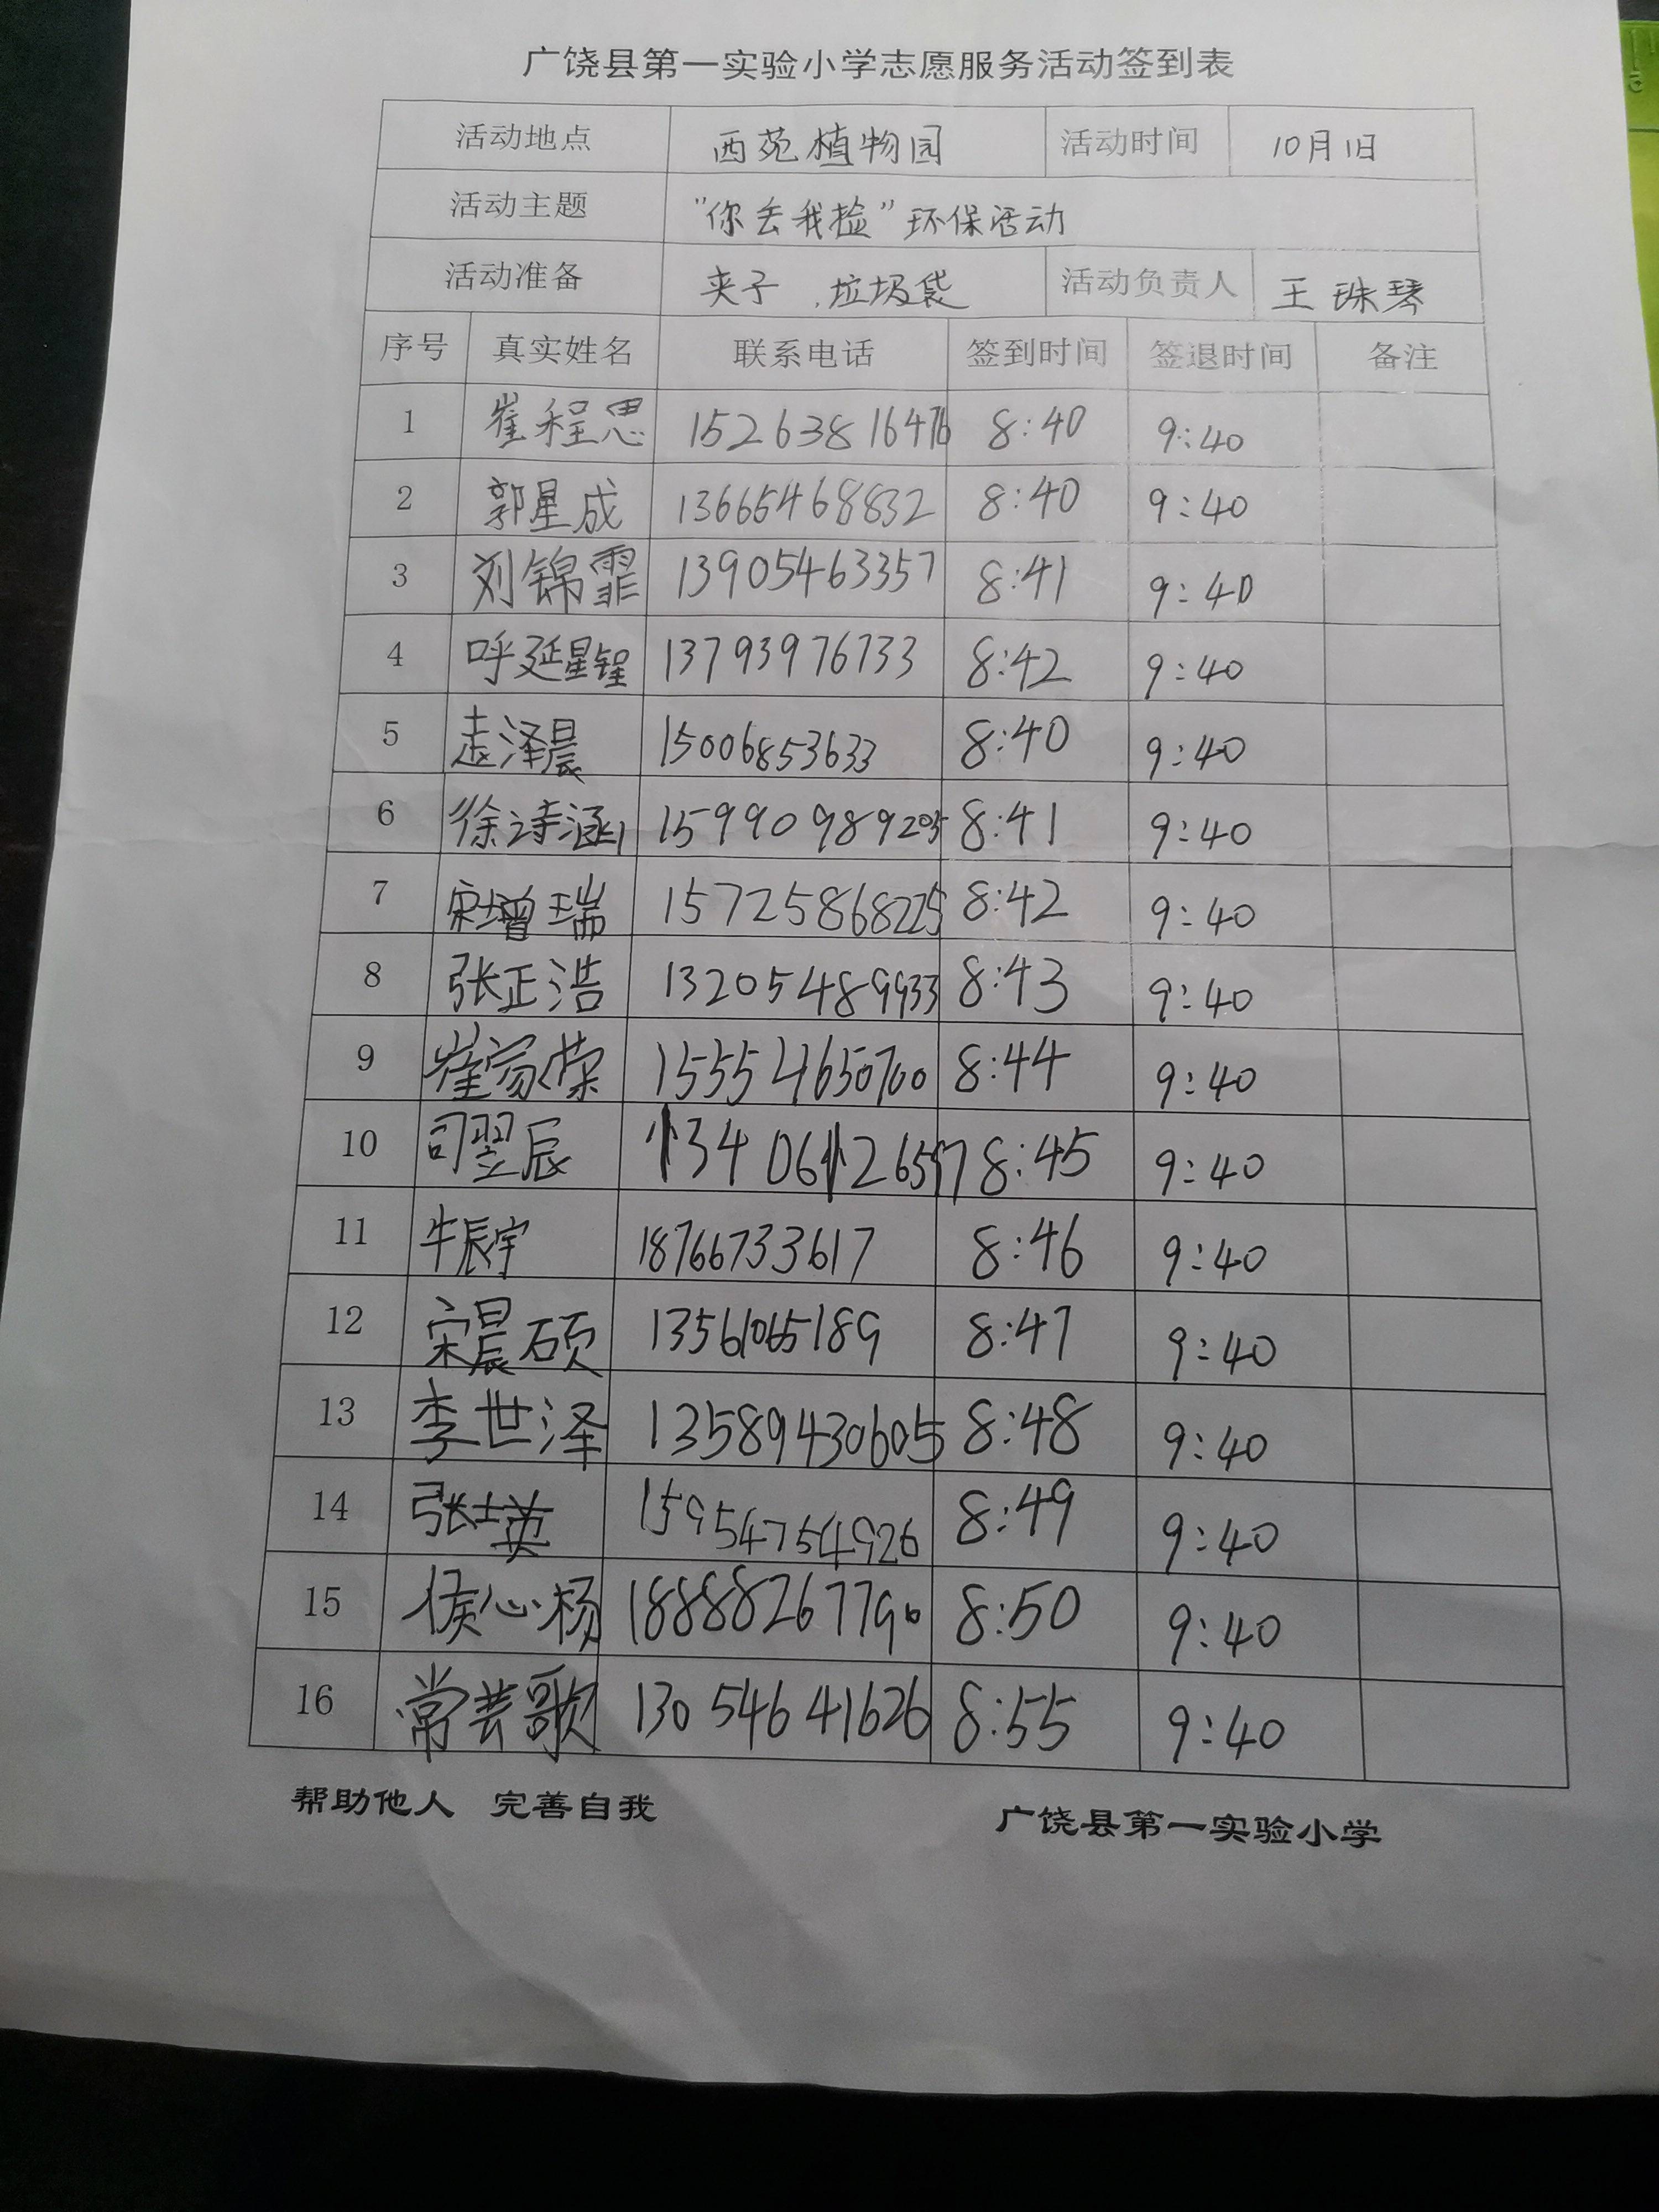 广饶县第一实验小学志愿服务活动签到表
活动地点 西苑植物园 活动时间 10月1日
活动主题 "你丢我捡"环保活动
活动准备 夹子、垃圾袋 活动负责人 王珠琴
序号 真实姓名 联系电话 签到时间 签退时间 备注
1 崔程思 15263816476 8:40 9:40
2 郭星成 13665468832 8:40 9:40
3 刘锦霏 13905463357 8:41 9:40
4 呼延星锃 13793976733 8:42 9:40
5 孟泽晨 15006853633 8:40 9:40
6 徐诗涵 15990989205 8:41 9:40
7 宋增瑞 15725868225 8:42 9:40
8 张正浩 13205489933 8:43 9:40
9 崔家荣 15554650700 8:44 9:40
10 司翌辰 13406126597 8:45 9:40
11 牛辰宇 18766733617 8:46 9:40
12 宋晨硕 13561065189 8:47 9:40
13 李世泽 13589430605 8:48 9:40
14 张士英 15954754926 8:49 9:40
15 侯心杨 18888267790 8:50 9:40
16 常芸歌 13054641626 8:55 9:40
帮助他人 完善自我 广饶县第一实验小学